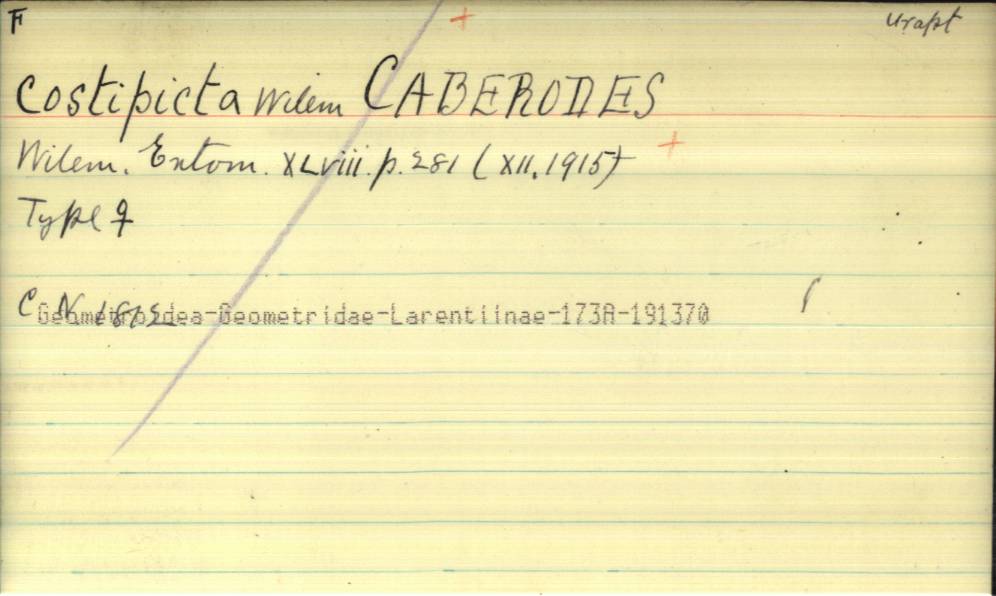 F urapt
Costipicta Wilem CABERODES
Wilem. Entom. XLviii. p. 281 (XII. 1915)
Type ♀
C. N. 1872
Geometroidea-Geometridae-Larentiinae-173A-191370